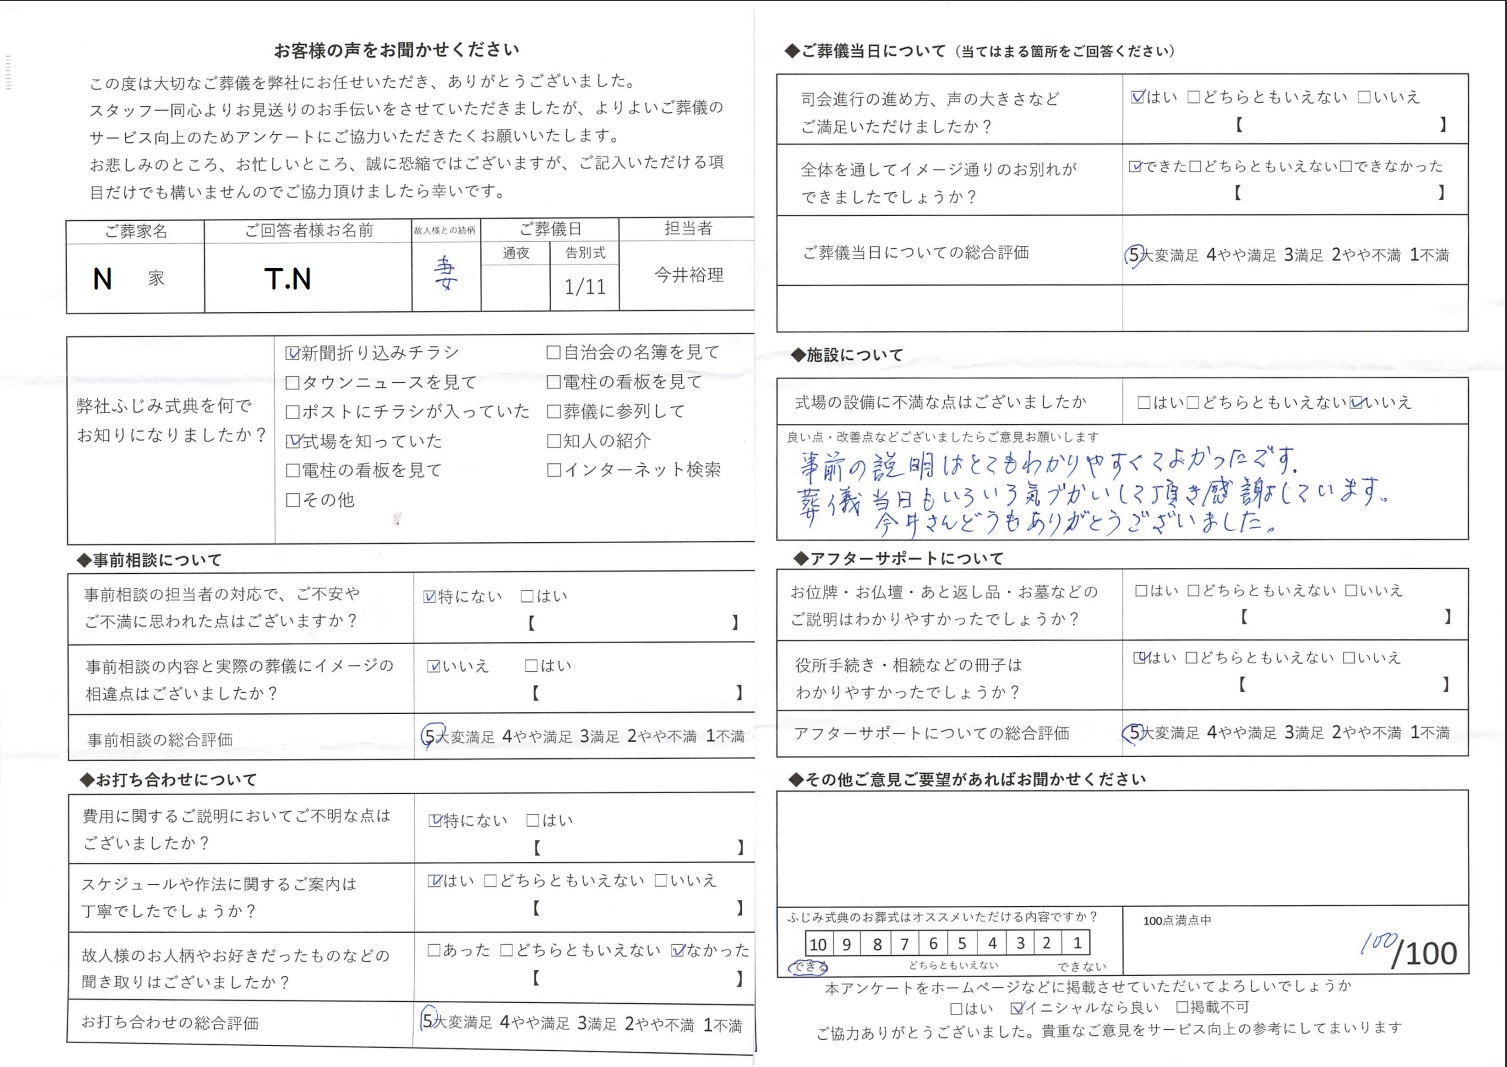 お客様の声をお聞かせください
この度は大切なご葬儀を弊社にお任せいただき、ありがとうございました。
スタッフ一同心よりお見送りのお手伝いをさせていただきましたが、よりよいご葬儀の
サービス向上のためアンケートにご協力いただきたくお願いいたします。
お悲しみのところ、お忙しいところ、誠に恐縮ではございますが、ご記入いただける項
目だけでも構いませんのでご協力頂けましたら幸いです。
ご葬家名 ご回答者様お名前 故人様との続柄 ご葬儀日 担当者
通夜 告別式
N 家 T.N 妻 1/11 今井裕理
弊社ふじみ式典を何で
お知りになりましたか？
☑新聞折り込みチラシ □自治会の名簿を見て
□タウンニュースを見て □電柱の看板を見て
□ポストにチラシが入っていた □葬儀に参列して
☑式場を知っていた □知人の紹介
□電柱の看板を見て □インターネット検索
□その他
◆事前相談について
事前相談の担当者の対応で、ご不安や
ご不満に思われた点はございますか？
☑特にない □はい
【 】
事前相談の内容と実際の葬儀にイメージの
相違点はございましたか？
☑いいえ □はい
【 】
事前相談の総合評価 5大変満足 4やや満足 3満足 2やや不満 1不満
◆お打ち合わせについて
費用に関するご説明においてご不明な点は
ございましたか？
☑特にない □はい
【 】
スケジュールや作法に関するご案内は
丁寧でしたでしょうか？
☑はい □どちらともいえない □いいえ
【 】
故人様のお人柄やお好きだったものなどの
聞き取りはございましたか？
□あった □どちらともいえない ☑なかった
【 】
お打ち合わせの総合評価 5大変満足 4やや満足 3満足 2やや不満 1不満
◆ご葬儀当日について（当てはまる箇所をご回答ください）
司会進行の進め方、声の大きさなど
ご満足いただけましたか？
☑はい □どちらともいえない □いいえ
【 】
全体を通してイメージ通りのお別れが
できましたでしょうか？
☑できた□どちらともいえない□できなかった
【 】
ご葬儀当日についての総合評価 5大変満足 4やや満足 3満足 2やや不満 1不満
◆施設について
式場の設備に不満な点はございましたか □はい□どちらともいえない☑いいえ
良い点・改善点などございましたらご意見お願いします
事前の説明はとてもわかりやすくてよかったです。
葬儀当日もいろいろ気づかいして頂き感謝しています。
今井さんどうもありがとうございました。
◆アフターサポートについて
お位牌・お仏壇・あと返し品・お墓などの
ご説明はわかりやすかったでしょうか？
□はい □どちらともいえない □いいえ
【 】
役所手続き・相続などの冊子は
わかりやすかったでしょうか？
☑はい □どちらともいえない □いいえ
【 】
アフターサポートについての総合評価 5大変満足 4やや満足 3満足 2やや不満 1不満
◆その他ご意見ご要望があればお聞かせください
ふじみ式典のお葬式はオススメいただける内容ですか？
10 9 8 7 6 5 4 3 2 1
できる どちらともいえない できない
100点満点中
100/100
本アンケートをホームページなどに掲載させていただいてよろしいでしょうか
□はい ☑イニシャルなら良い □掲載不可
ご協力ありがとうございました。貴重なご意見をサービス向上の参考にしてまいります